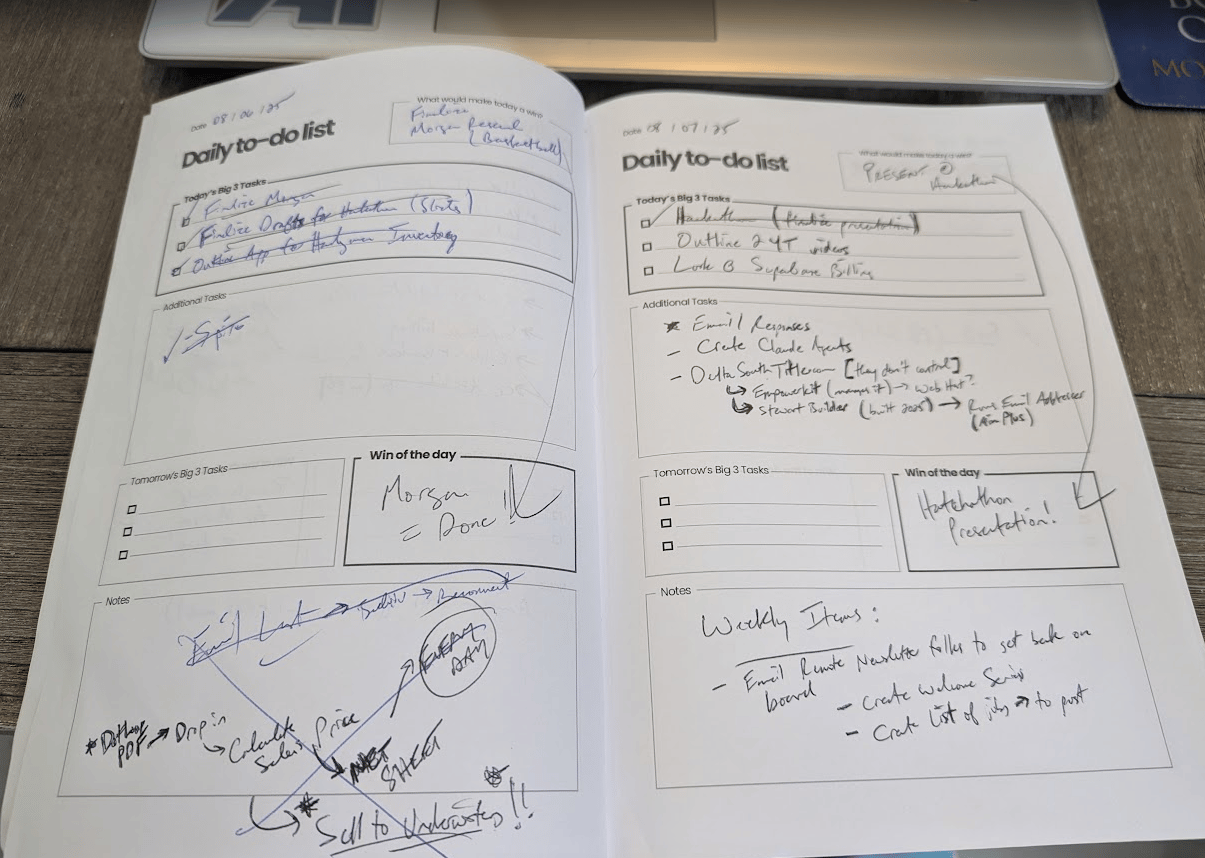 AI
Date 08/06/25
Daily to-do list
What would make today a win?
Finalize
Morgan
(Basketball)
Today's Big 3 Tasks
Finalize Morgan
Finalize Drafts for Hackathon (Slides)
Outline App for Handyman Inventory
Additional Tasks
Tomorrow's Big 3 Tasks
Win of the day
Morgan
= Done!!
Notes
Email List → → Reconnect
EVERY
DAY
PDF → Drop in
Calculate
Sales Price
NET
SHEET
Sell to Underwriters!!
Date 08/07/25
Daily to-do list
What would make today a win?
PRESENT @
Hackathon
Today's Big 3 Tasks
Hackathon (finalize presentation)
Outline 2 YT videos
Look @ Supabase Billing
Additional Tasks
Email Responses
- Create Claude Agents
- DeltaSouthTitle.com [they don't control]
↳ Empowerkit (manages it) → Web Host?
↳ Stewart Builder (built 2025) → Runs Email Addresses
Tomorrow's Big 3 Tasks
Win of the day
Hatchathon
Presentation!
Notes
Weekly Items:
- Email Remote Newsletter folks to get back on
board
- Create Welcome Series
- Crate list of jobs → to post
MO